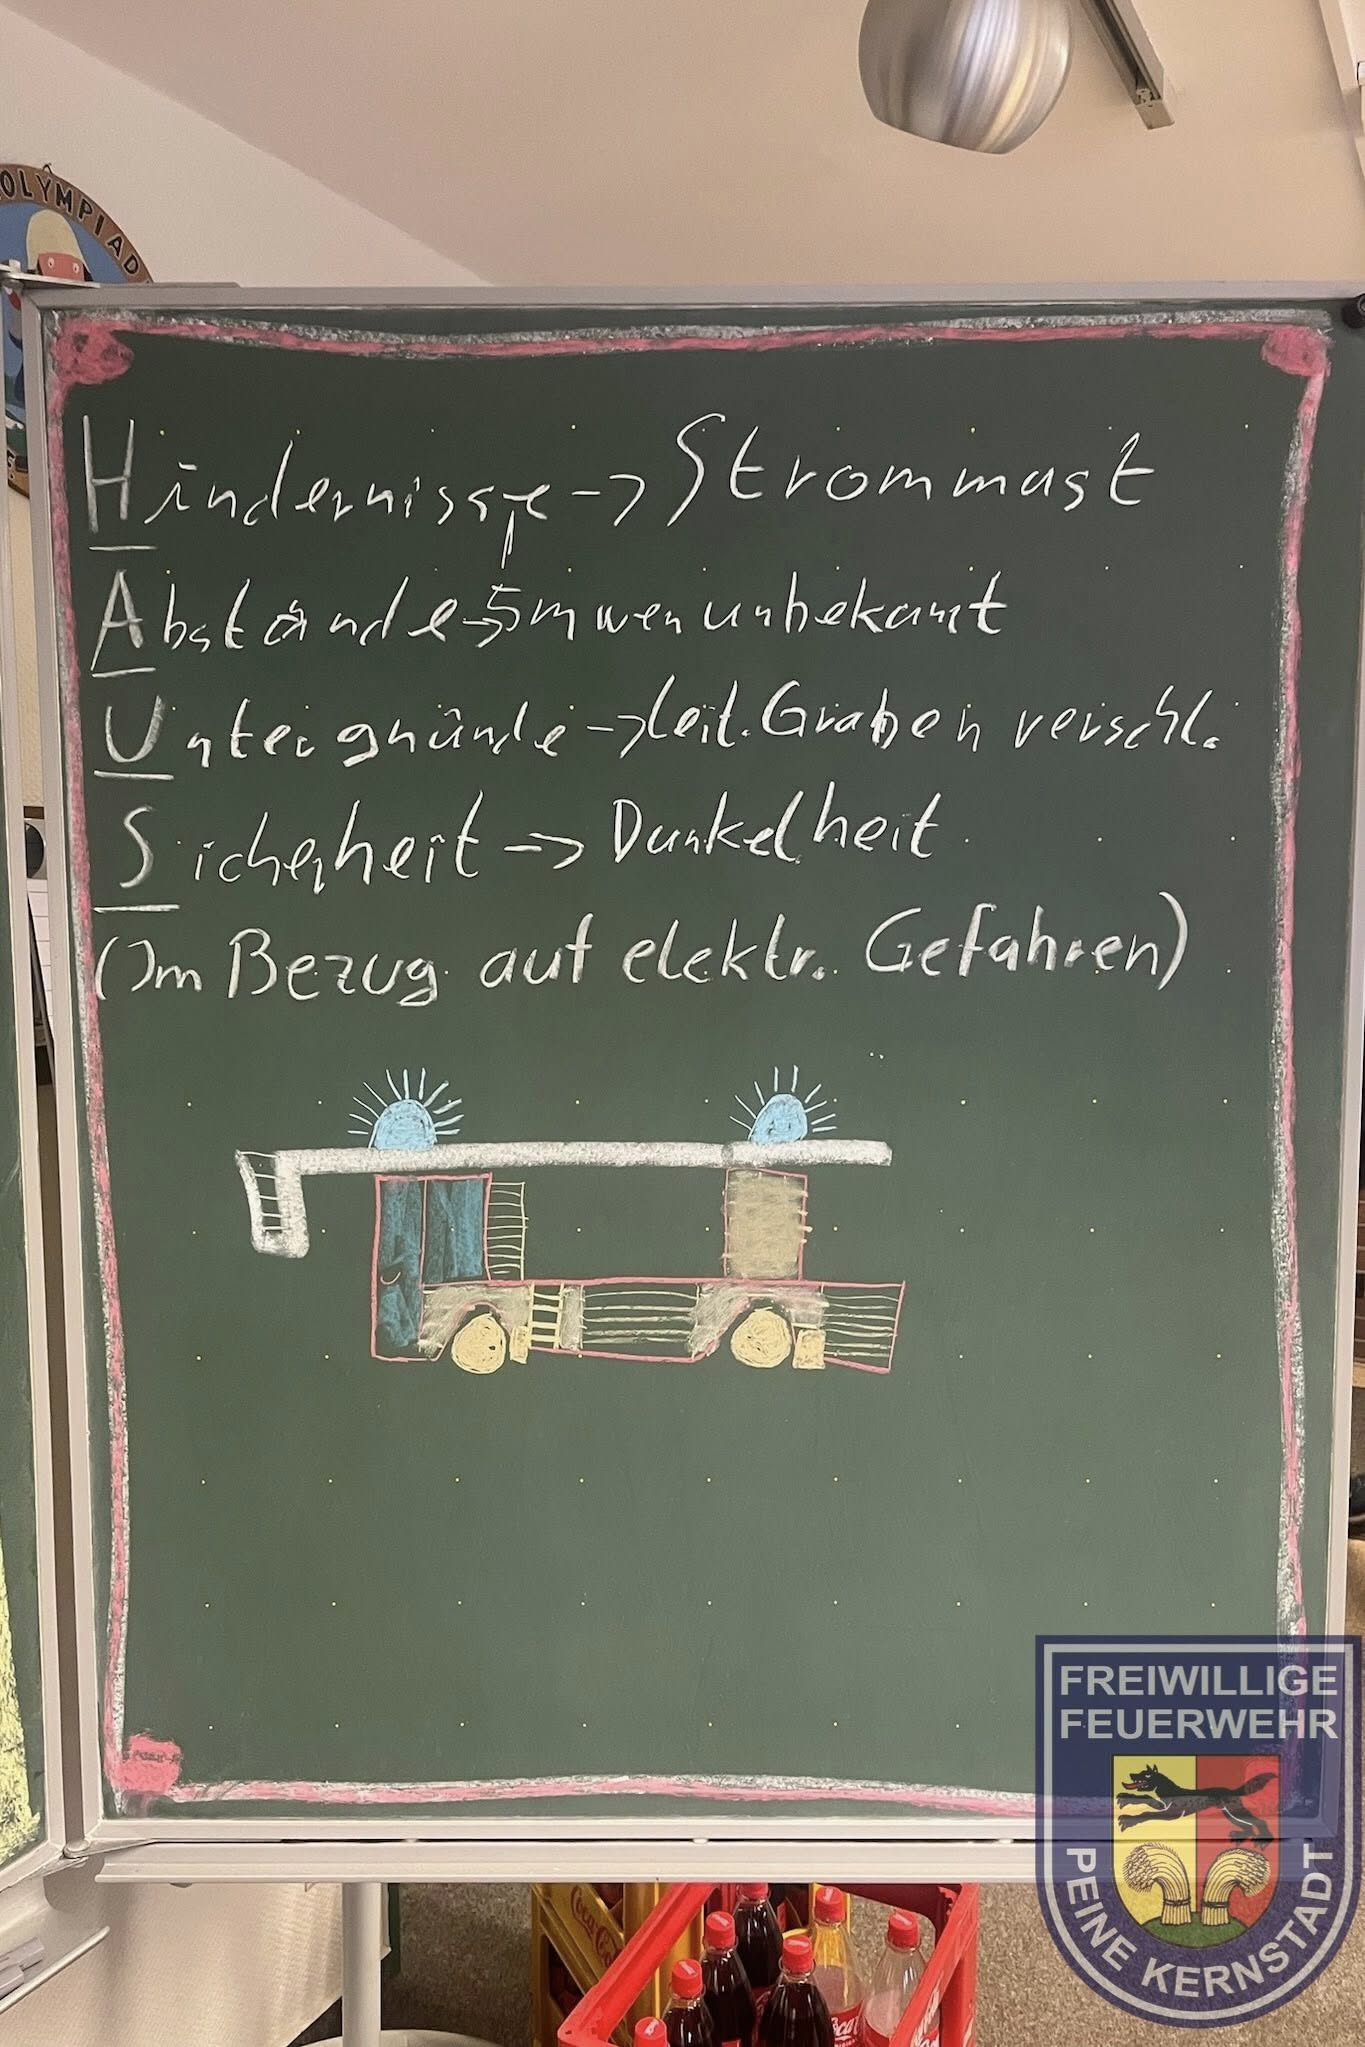 OLYMPIAD
Hindernisse -> Strommast
Abstände -> 5m wen unbekannt
Untergründe -> Leit. Graben verschl.
Sicherheit -> Dunkelheit
(Im Bezug auf elektr. Gefahren)
FREIWILLIGE
FEUERWEHR
PEINE KERNSTADT
Coca-Cola